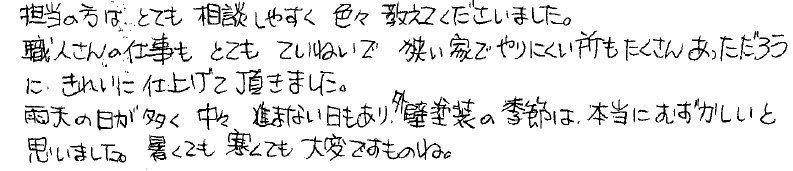 担当の方は、とても 相談しやすく 色々 教えてくださいました。
職人さんの仕事も とても ていねいで 狭い家でやりにくい所もたくさんあっただろう
に、きれいに仕上げて頂きました。
雨天の日が多く 中々 進まない日もあり、外壁塗装の季節は、本当にむずかしいと
思いました。暑くても 寒くても 大変ですものね。